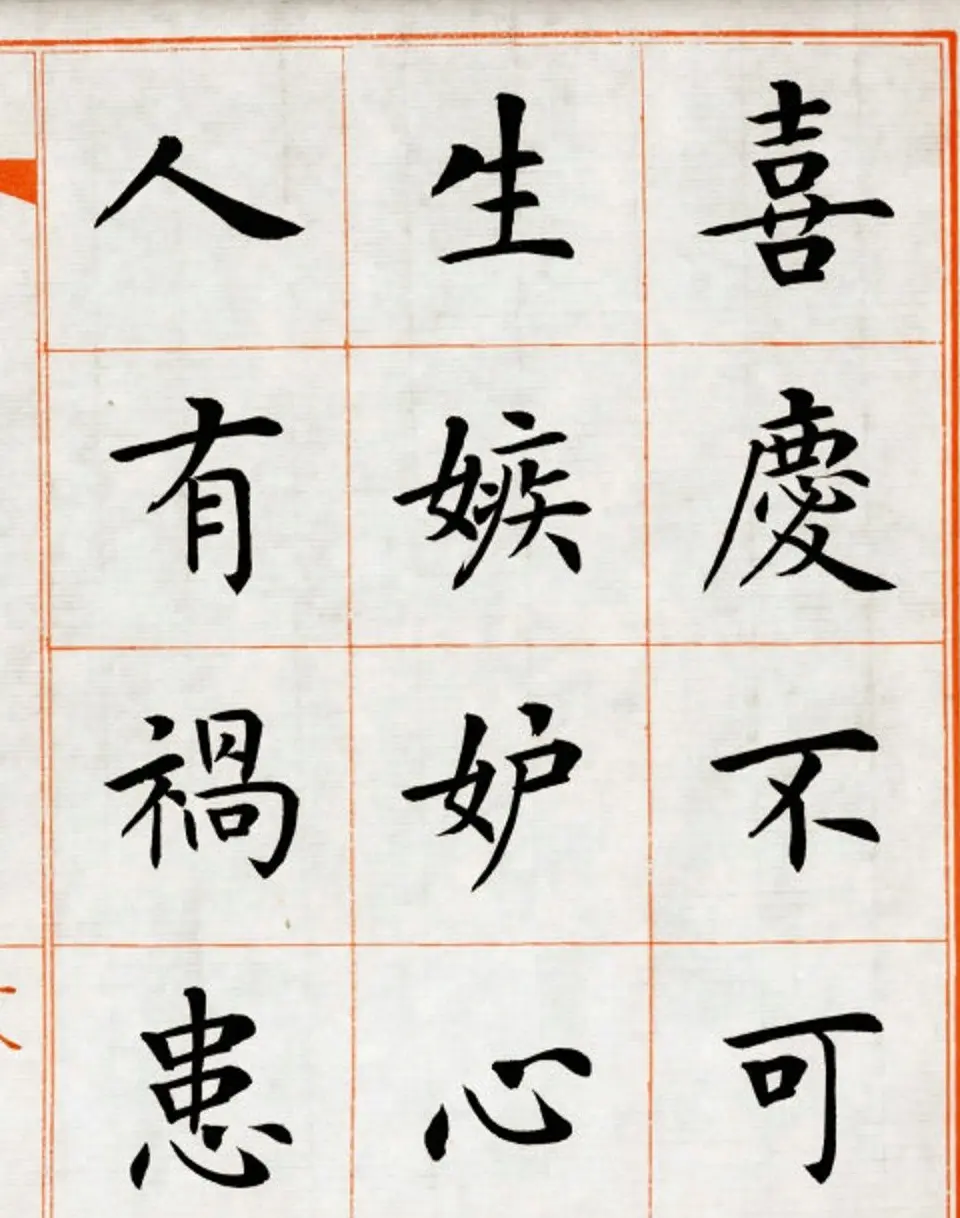 喜慶不可
生嫉妒心
人有禍患